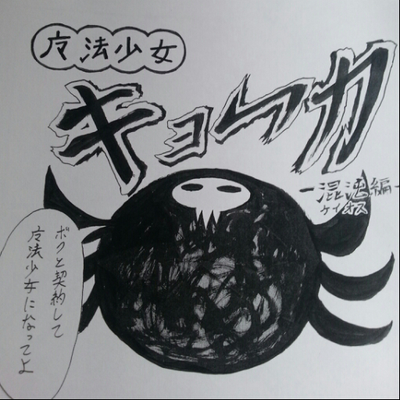 广法少女
キョーカ
-混沌編-
ケイオス
ボクと契約して
广法少女になってよ